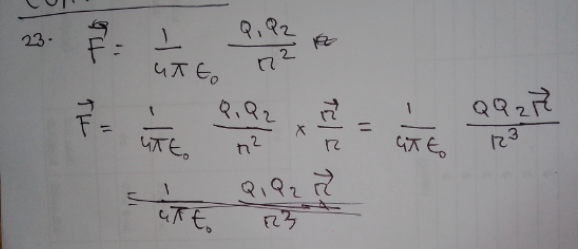 23. F⃗ = 1/4πϵ₀ Q₁Q₂/r²
F⃗ = 1/4πϵ₀ Q₁Q₂/r² × r⃗/r = 1/4πϵ₀ QQ₂r⃗/r³
= 1/4πϵ₀ Q₁Q₂r⃗/r³